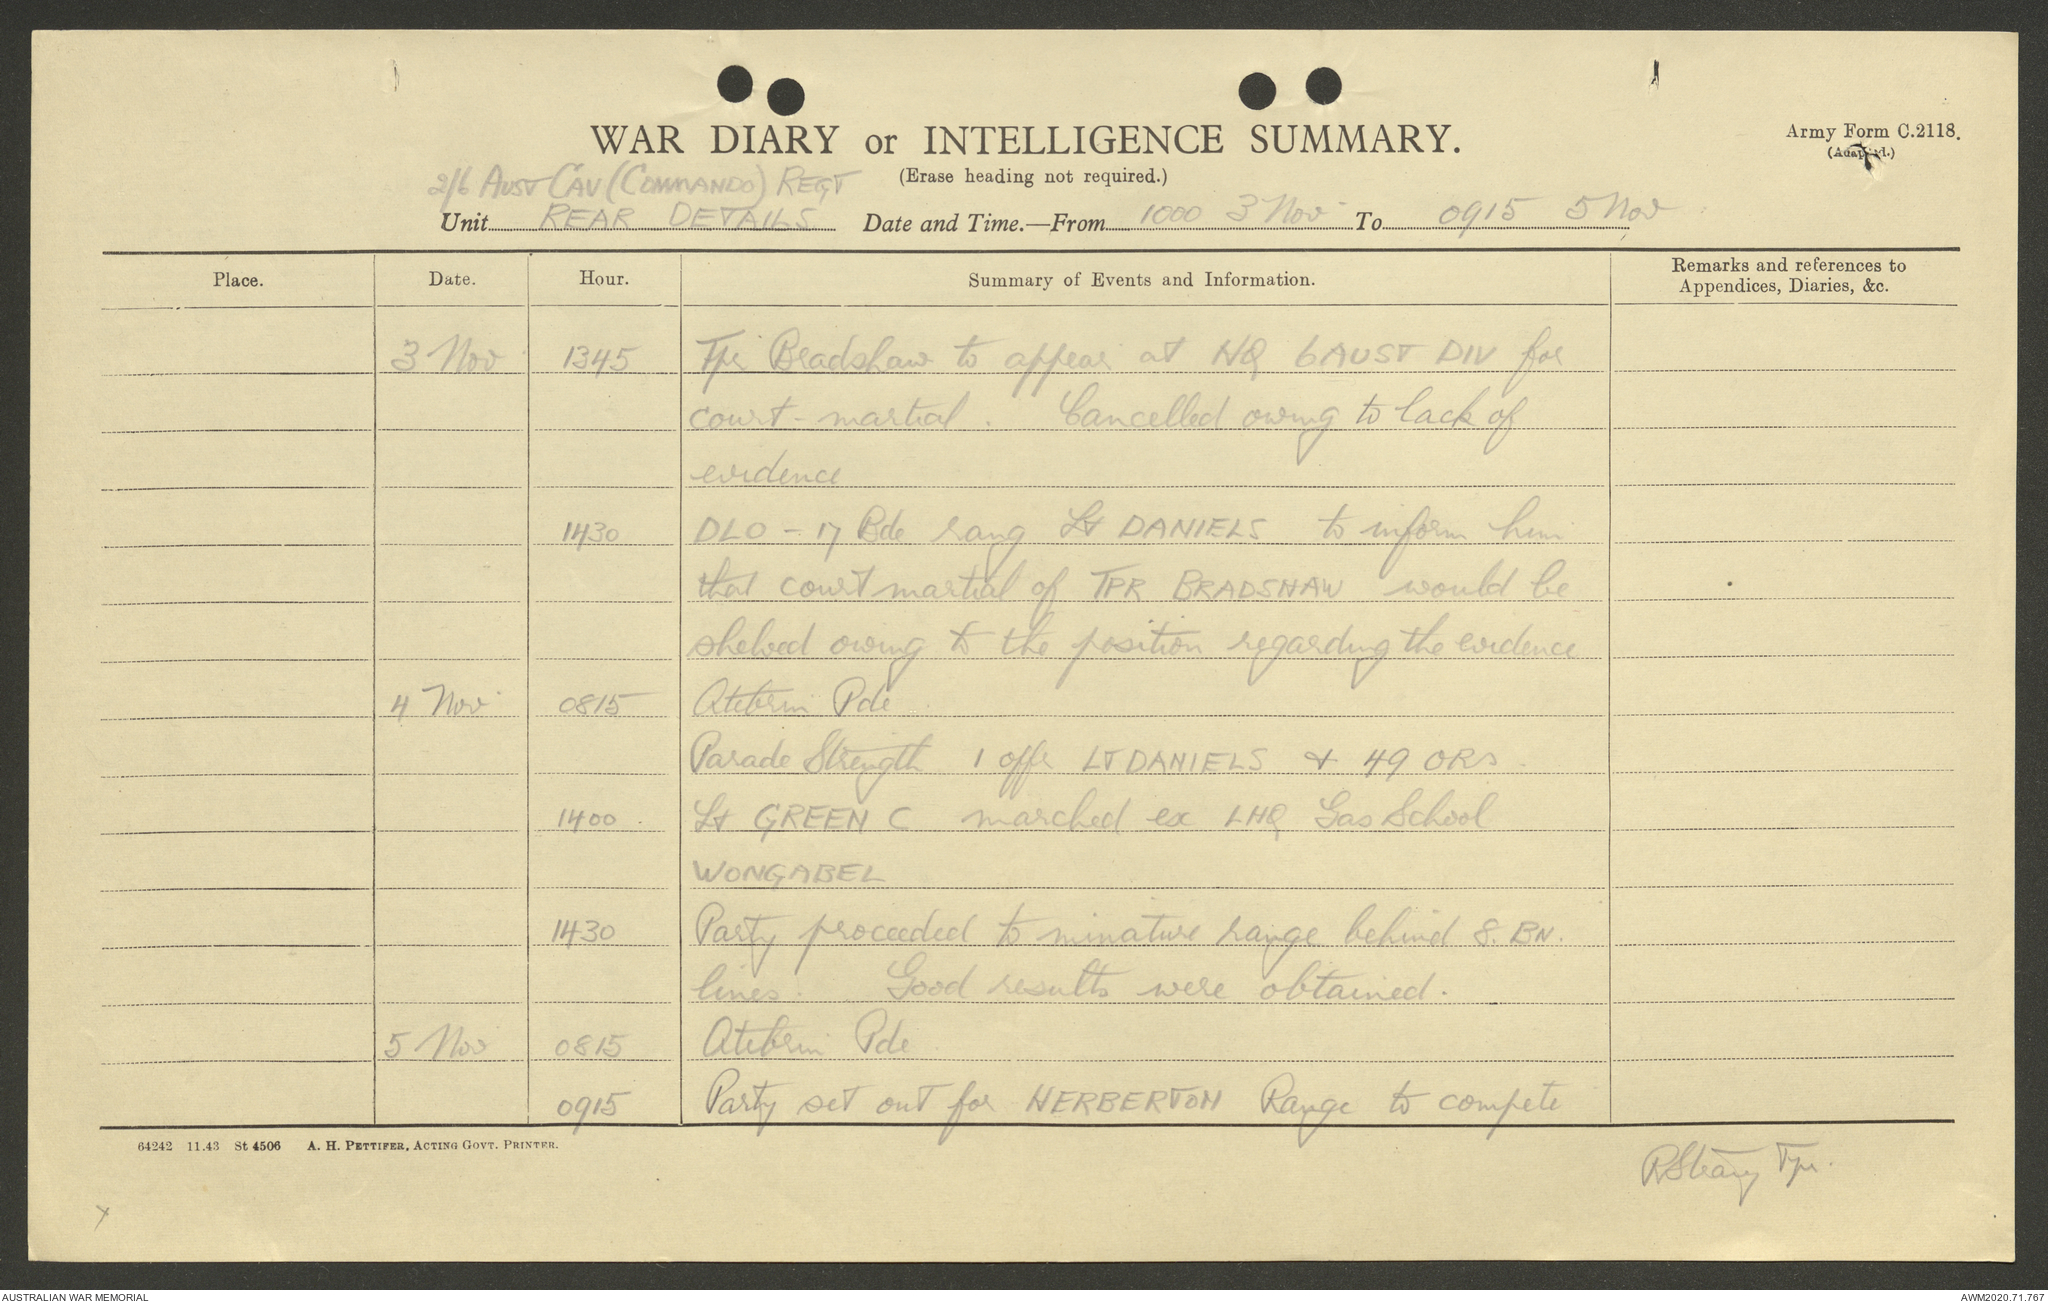 WAR DIARY or INTELLIGENCE SUMMARY.
Army Form C.2118.
(Erase heading not required.)
2/6 AUST CAV (COMMANDO) REGT
Unit REAR DETAILS Date and Time.—From 1000 3 Nov To 0915 5 Nov
Place. Date. Hour. Summary of Events and Information. Remarks and references to
Appendices, Diaries, &c.
3 Nov 1345 Tpr Bradshaw to appear at HQ 6 AUST DIV for
court-martial. Cancelled owing to lack of
evidence
1430 DLO - 17 Bde rang Lt DANIELS to inform him
that court martial of TPR BRADSHAW would be
shelved owing to the position regarding the evidence
4 Nov 0815 Atebrin Pde
Parade Strength 1 offr LT DANIELS & 49 ORs
1400 Lt GREEN C marched ex LHQ Gas School
WONGABEL
1430 Party proceeded to minature range behind 8. BN.
lines. Good results were obtained.
5 Nov 0815 Atebrin Pde
0915 Party set out for HERBERTON Range to compete
64242 11.43 St 4506 A. H. PETTIFER, ACTING GOVT. PRINTER.
Tpr.
AUSTRALIAN WAR MEMORIAL
AWM2020.71.767